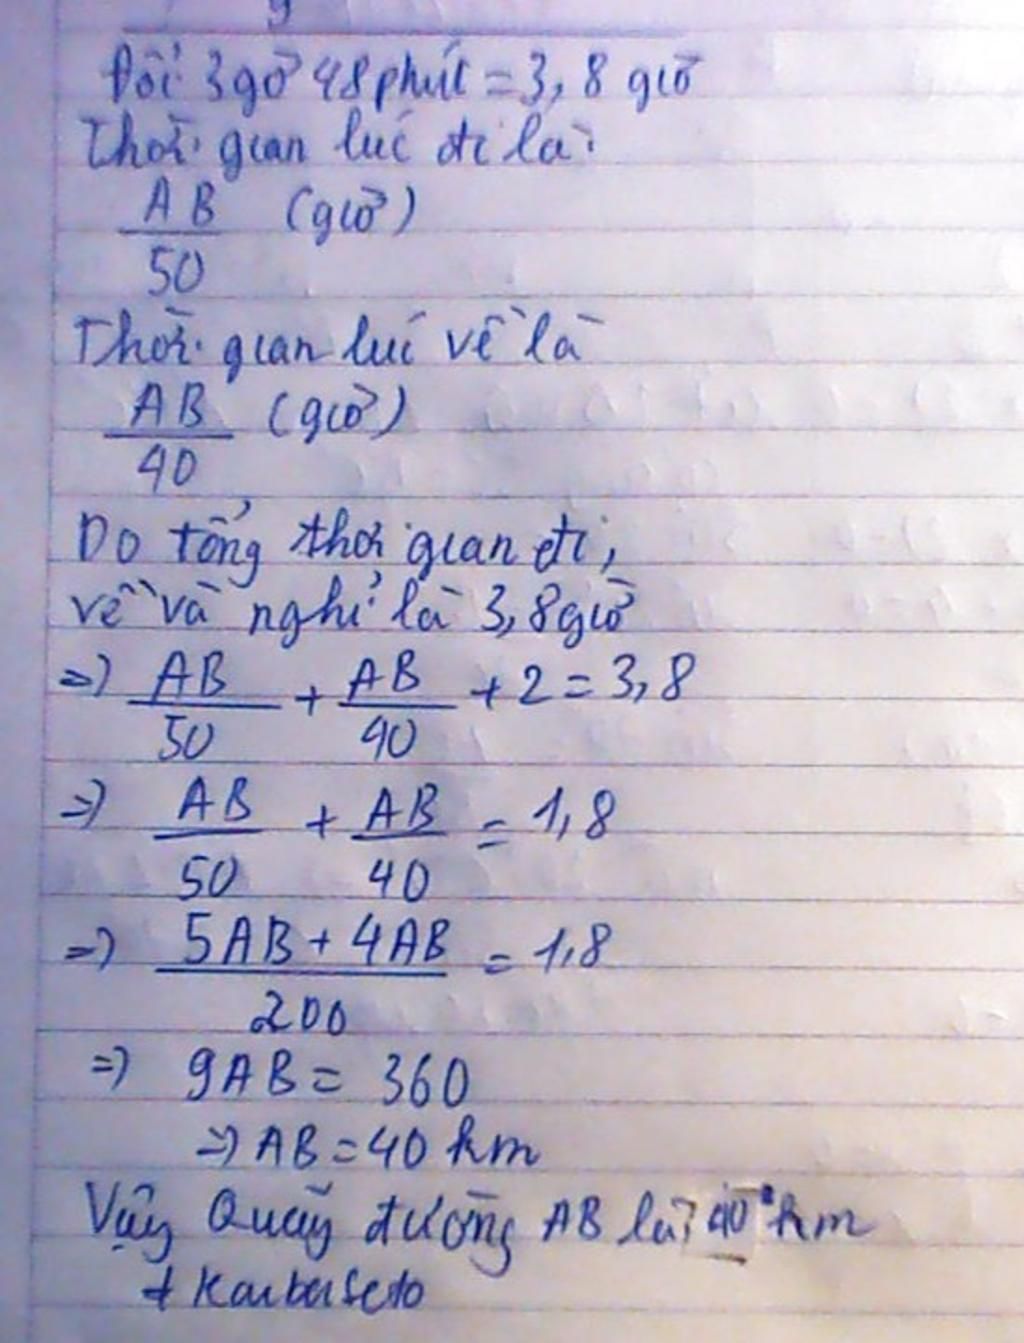 Đổi 3 giờ 48 phút = 3,8 giờ
Thời gian lúc đi là:
AB/50 (giờ)
Thời gian lúc về là
AB/40 (giờ)
Do tổng thời gian đi,
về và nghỉ là 3,8 giờ
=> AB/50 + AB/40 + 2 = 3,8
=> AB/50 + AB/40 = 1,8
=> 5AB + 4AB/200 = 1,8
=> 9AB = 360
=> AB = 40 km
Vậy Quãng đường AB là 40 km